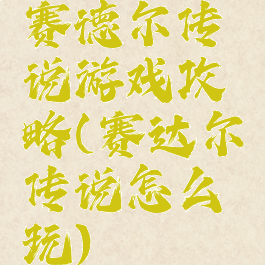 赛德尔传
说游戏攻
略(赛达尔
传说怎么
玩)